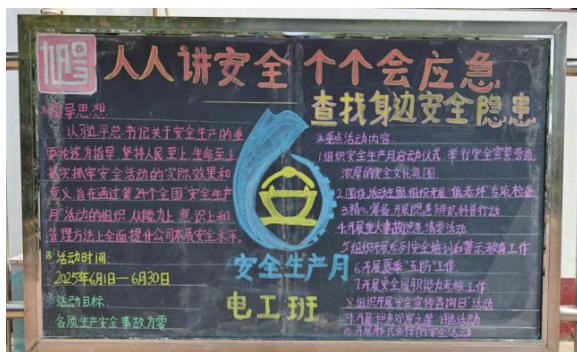 人人讲安全 个个会应急
查找身边安全隐患
指导思想:
以习近平总书记关于安全生产的重
要论述为指导,坚持人民至上,生命至上
抓实抓牢安全活动的实际效果和
意义,旨在通过第24个全国"安全生产
月"活动的组织,从能力上、意识上和
管理方法上全面提升公司本质安全水平。
活动时间:
2025年6月1日—6月30日
活动目标:
各项生产安全事故为零
安全生产月
电工班
重点活动内容:
1.组织安全生产月启动仪式,举行安全宣誓营造
浓厚的安全文化氛围
2.围绕活动主题组织开展"低老坏"专项检查
3.精心筹备开展隐患辨识科普行动
4.开展重大事故隐患清零活动
5.组织开展系列安全培训和警示教育工作
6.开展夏季"五防"工作
7.开展安全履职能力考核工作
8.组织开展"安全宣传咨询日"活动
9.开展 之星"评选活动
10.开展形式多样的安全活动